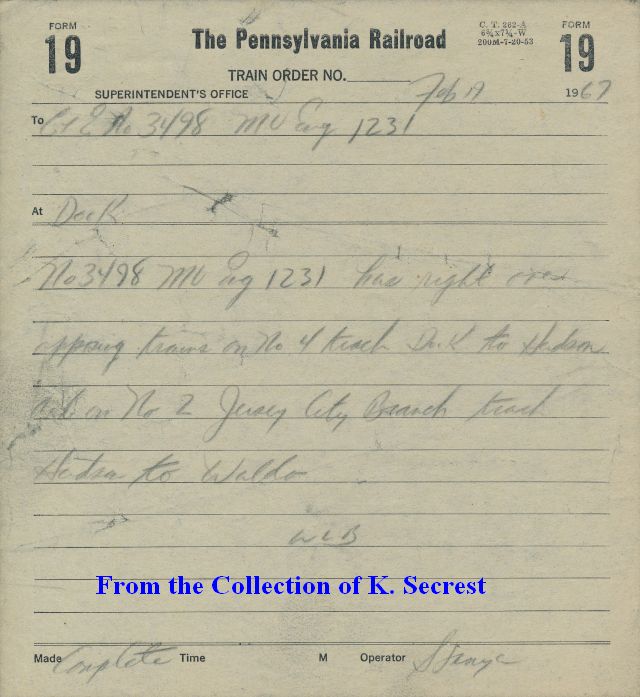 FORM 19
The Pennsylvania Railroad
C. T. 262-A
6¾x7¼-W
200M-7-20-53
FORM 19
TRAIN ORDER NO.
SUPERINTENDENT'S OFFICE
Feb 1967
To C&E No 3498 MU Eng 1231
At Dock
No 3498 MU Eng 1231 has right over
opposing trains on No 4 track Dock to Hudson
and on No 2 Jersey City Branch track
Hudson to Waldo
WCB
From the Collection of K. Secrest
Made Complete Time M Operator